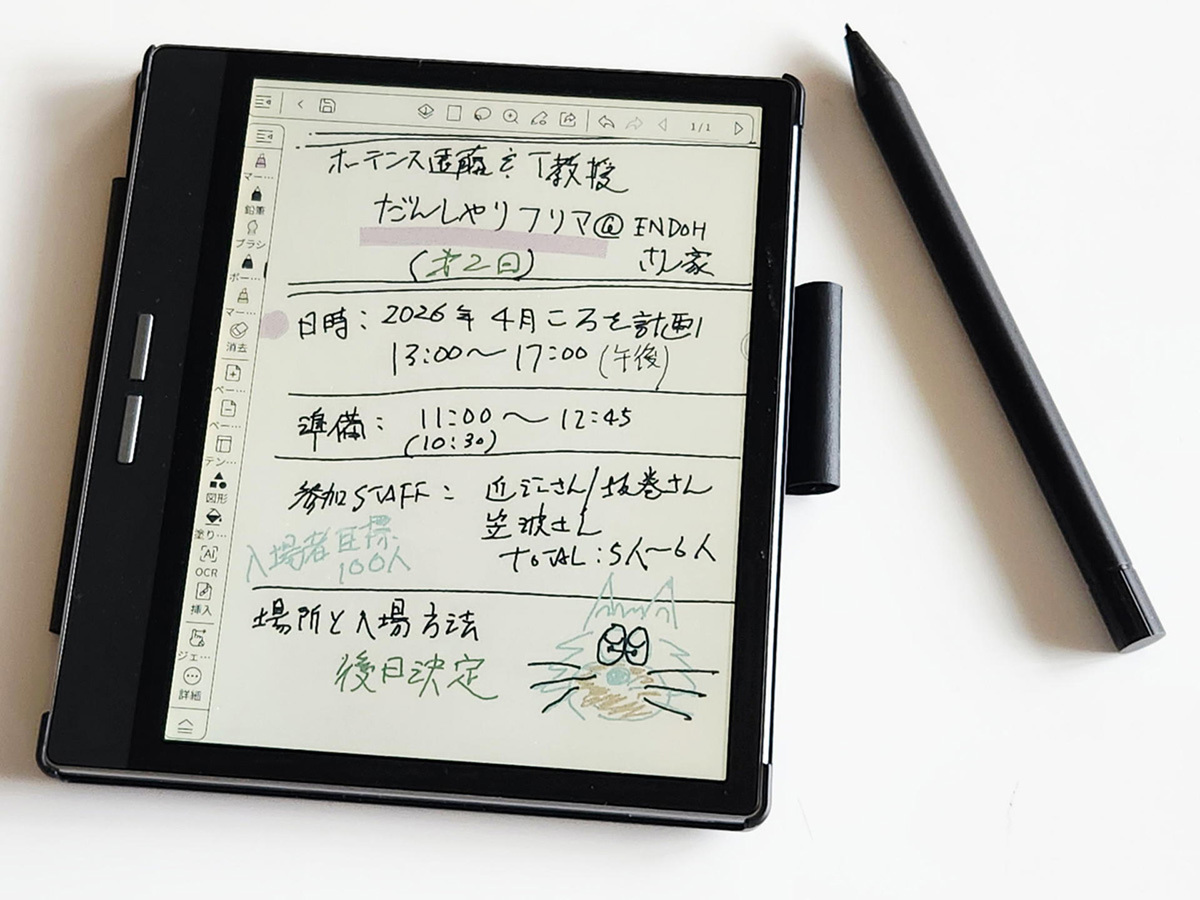 1/1
マー…
鉛筆
ブラシ
ボー…
マー…
消去
ペー…
ペー…
テン…
図形
塗り…
AI
OCR
挿入
ジェ…
詳細
ホーテンス遠藤 T教授
だんしゃりフリマ@ ENDOH
さん家
(才2日)
日時: 2026年 4月ころを計画
13:00〜17:00 (午後)
準備: 11:00〜12:45
(10:30)
参加STAFF: 近江さん/坂巻さん
笠波さん
TOTAL:5人〜6人
入場者目標
100人
場所と入場方法
後日決定